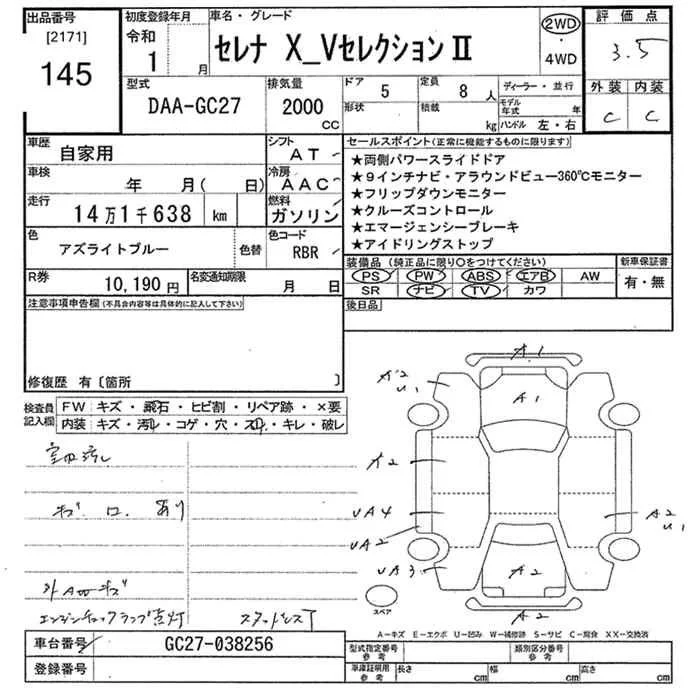 出品番号
[2171]
145
初度登録年月
令和
1 月
車名・グレード
セレナ X_VセレクションⅡ
2WD
・
4WD
評価点
3.5
外装 内装
C C
型式
DAA-GC27
排気量
2000
CC
ドア 5
形状
定員 8 人
積載 kg
ディーラー・並行
モデル年式 年
ハンドル 左・右
車歴
自家用
シフト
AT
車検
年 月( 日)
冷房
AAC
走行
14万1千638 km
燃料
ガソリン
色
アズライトブルー
色替
色コード
RBR
R券
10,190円
名変通知期限
月 日
セールスポイント(正常に機能するものに限ります)
★両側パワースライドドア
★9インチナビ・アラウンドビュー360℃モニター
★フリップダウンモニター
★クルーズコントロール
★エマージェンシーブレーキ
★アイドリングストップ
装備品(純正品に限り○をつけてください)
PS PW ABS エアB AW
SR ナビ TV カワ
新車保証書
有・無
後日品
注意事項申告欄(不具合内容等は具体的に記入して下さい)
修復歴 有〔箇所 〕
検査員
記入欄
FW キズ・飛石・ヒビ割・リペア跡・×要
内装 キズ・汚レ・コゲ・穴・スレ・キレ・破レ
室内汚レ
キズ あり
エンジンチェックランプ点灯
スタッドレスT
A1
A2
U1
A1
A2
UA4
UA2
UA3
A2
U1
A2
A2
スペア
A−キズ E−エクボ U−凹み W−補修跡 S−サビ C−腐食 XX−交換済
車台番号
GC27-038256
登録番号
型式指定番号
参考
類別区分番号
参考
車庫証明用
参考
長さ cm 幅 cm 高さ cm